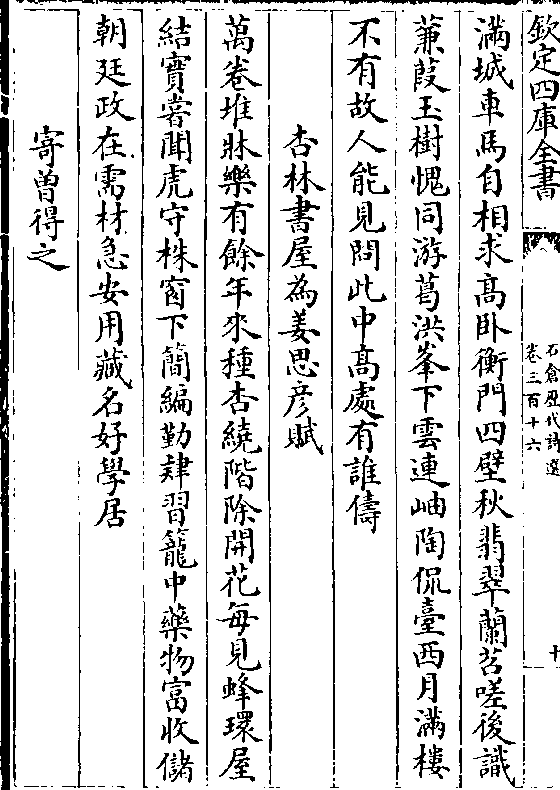 欽定四庫全書
石倉歷代詩選
卷三百十六
十
滿城車馬自相求髙卧衡門四壁秋翡翠蘭苕嗟後識
蒹葭玉樹愧同游葛洪峯下雲連岫陶侃臺西月滿樓
不有故人能見問此中髙處有誰儔
杏林書屋為姜思彦賦
萬卷堆牀樂有餘年來種杏繞階除開花每見蜂環屋
結實嘗聞虎守株窗下簡編勤肄習籠中藥物富收儲
朝廷政在需材急安用藏名好學居
寄曽得之